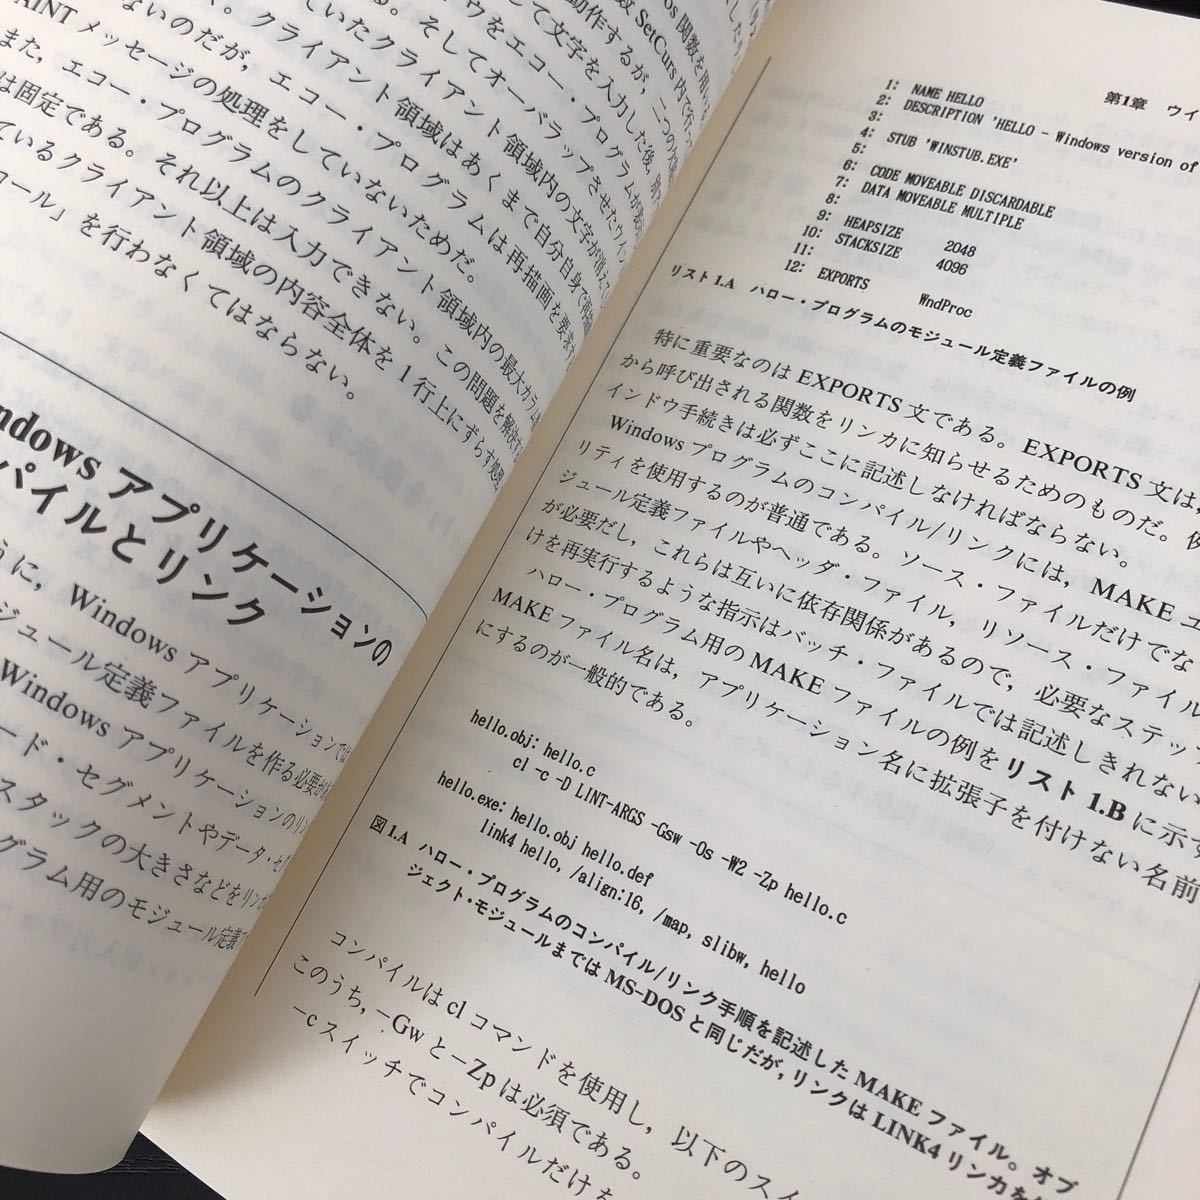 os 関数を用い
数 SetCurs 内で行っ
動作するが，二つの
して文字を入力した後，
ウをエコー・プログラムが
ていたクライアント領域内の文字が消えて
。そしてオーバラップさせたウイン
く。クライアント領域はあくまで自分自身で
AINT メッセージの処理をしていないためだ。
ないのだが，エコー・プログラムは再描画を要求
また，エコー・プログラムのクライアント領域内の最大カラム
は固定である。それ以上は入力できない。この問題を解決す
ているクライアント領域の内容全体を 1 行上にずらす処理
ロール」を行わなくてはならない。
ndows アプリケーションの
パイルとリンク
うに，Windows アプリケーションでは
ジュール定義ファイルを作る必要が
Windows アプリケーションのリン
ード・セグメントやデータ・セグ
スタックの大きさなどをリン
グラム用のモジュール定義
第1章 ウイ
1: NAME HELLO
2: DESCRIPTION 'HELLO - Windows version of
3:
4: STUB 'WINSTUB.EXE'
5:
6: CODE MOVEABLE DISCARDABLE
7: DATA MOVEABLE MULTIPLE
8:
9: HEAPSIZE 2048
10: STACKSIZE 4096
11:
12: EXPORTS WndProc
リスト 1.A ハロー・プログラムのモジュール定義ファイルの例
特に重要なのは EXPORTS 文である。EXPORTS 文は，
から呼び出される関数をリンカに知らせるためのものだ。例
インドウ手続きは必ずここに記述しなければならない。
Windows プログラムのコンパイル/リンクには，MAKE ユ
リティを使用するのが普通である。ソース・ファイルだけでな
ジュール定義ファイルやヘッダ・ファイル，リソース・ファイル
が必要だし，これらは互いに依存関係があるので，必要なステッ
けを再実行するような指示はバッチ・ファイルでは記述しきれない
ハロー・プログラム用の MAKE ファイルの例をリスト 1.B に示す
MAKE ファイル名は，アプリケーション名に拡張子を付けない名前
にするのが一般的である。
hello.obj: hello.c
cl -c -D LINT-ARGS -Gsw -Os -W2 -Zp hello.c
hello.exe: hello.obj hello.def
link4 hello, /align:16, /map, slibw, hello
図 1.A ハロー・プログラムのコンパイル/リンク手順を記述した MAKE ファイル。オブ
ジェクト・モジュールまでは MS-DOS と同じだが，リンクは LINK4 リンカを
コンパイルは cl コマンドを使用し，以下のスイ
このうち，-Gw と -Zp は必須である。
-c スイッチでコンパイルだけを